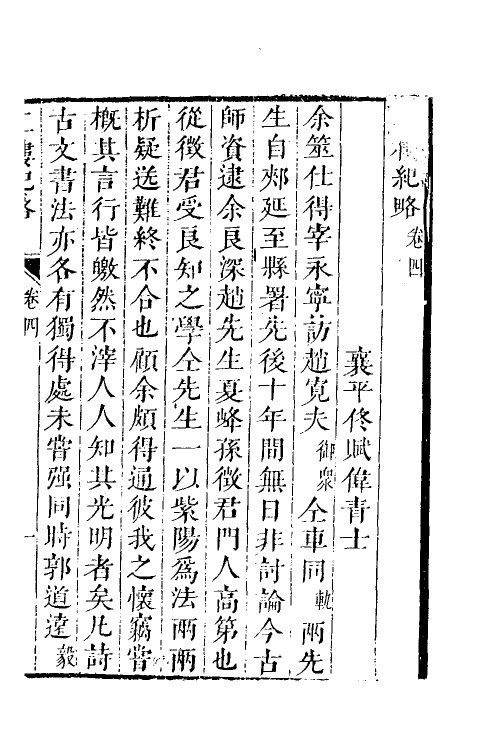 樓紀略卷四
襄平佟賦偉青士
余筮仕得宰永寧訪趙寛夫御衆仝車同軌兩先
生自郟延至縣署先後十年間無日非討論今古
師資逮余良深趙先生夏峰孫徵君門人高第也
從徵君受良知之學仝先生一以紫陽爲法兩兩
析疑送難終不合也顧余頗得通彼我之懷竊嘗
槪其言行皆皦然不滓人人知其光明者矣凡詩
古文書法亦各有獨得處未嘗强同時郭道逵毅
二樓紀略 卷四 一